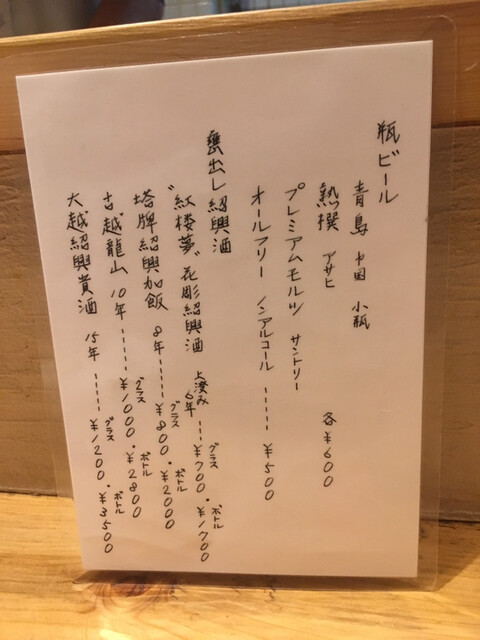 瓶ビール
青島 中国 小瓶
熱撰 アサヒ 各¥600
プレミアムモルツ サントリー
オールフリー ノンアルコール ----- ¥500
甕出し紹興酒
"紅楼夢"花彫紹興酒 上澄み 6年 --- グラス ¥700・ボトル ¥1700
塔牌紹興加飯 8年 ---- グラス ¥800・ボトル ¥2000
古越龍山 10年 ----- グラス ¥1000・ボトル ¥2800
大越紹興貴酒 15年 ----- グラス ¥1200・ボトル ¥3500